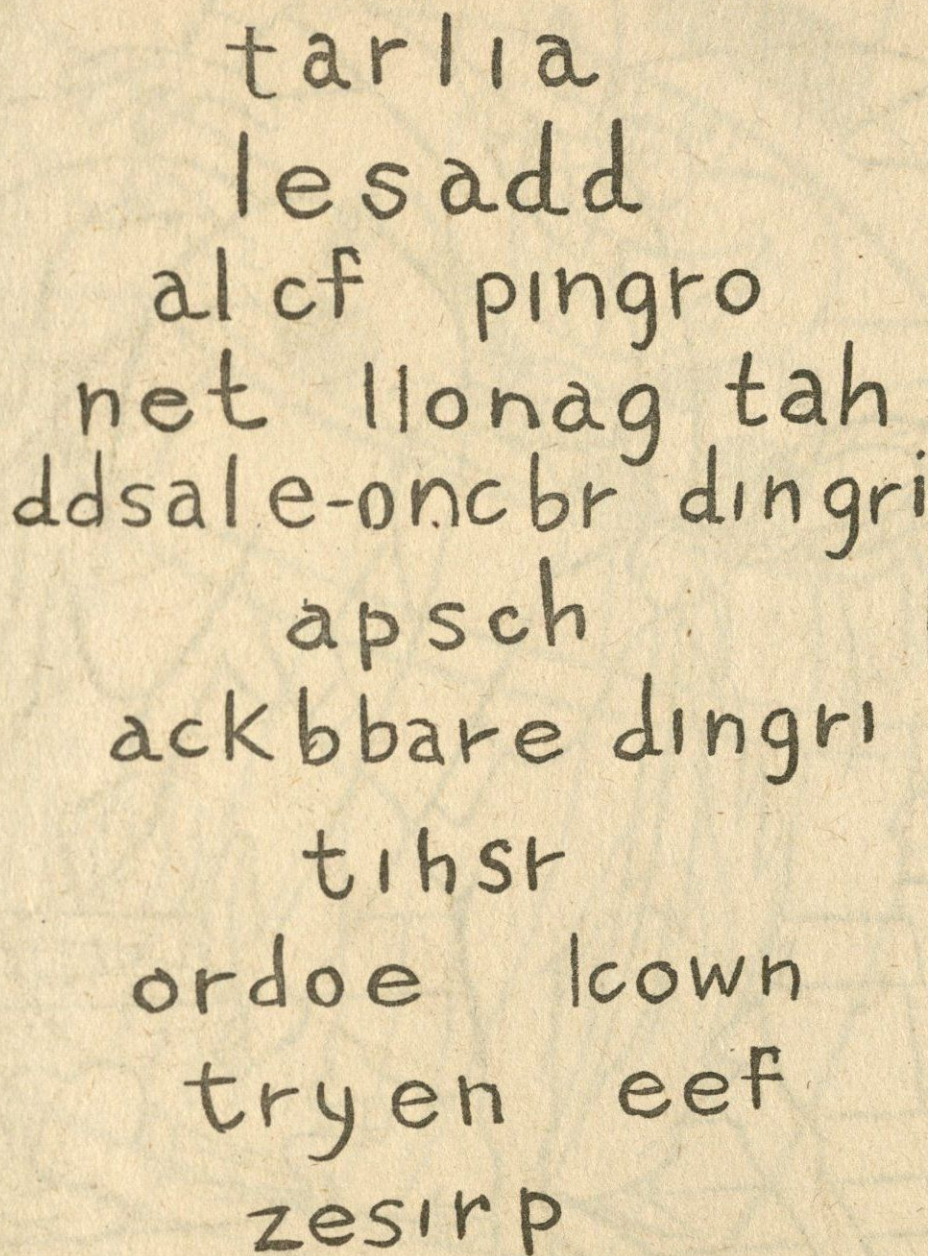 tarlia
lesadd
alcf pingro
net llonag tah
ddsale-oncbr dingri
apsch
ackbbare dingri
tihsr
ordoe lcown
tryen eef
zesirp